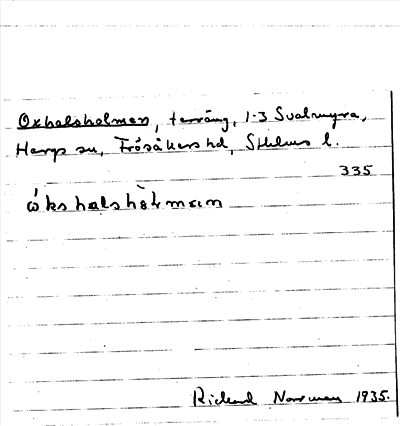 Oxhalsholmen, terräng, 1-3 Svalmyra,
Hargs sn, Frösåkers hd, Sthlms l.
335
Richard Norrman 1935.